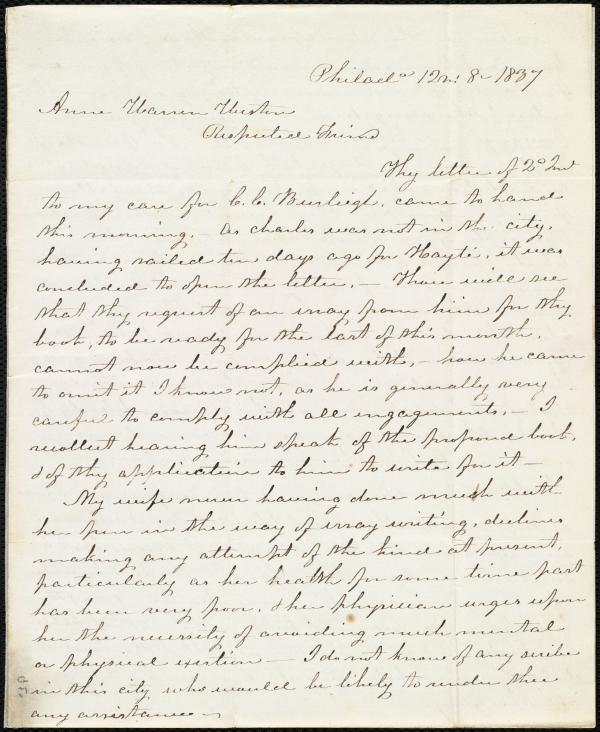 Philad.a 12m: 8 - 1837
Anne Warren Weston
Respected Friend
Thy letter of 2nd Inst
to my care for C. C. Burleigh, came to hand
this morning, - as Charles was not in the city,
having sailed ten days ago for Hayti, it was
concluded to open the letter. - Thou wilt see
that thy request of an essay from him for thy
book, to be ready for the last of this month,
cannot now be complied with, - how he came
to omit it I know not, as he is generally very
careful to comply with all engagements. - I
recollect hearing him speak of the proposed book,
& of thy application to him to write for it -
My wife never having done much with
her pen in the way of essay writing, declines
making any attempt of the kind at present,
particularly as her health for some time past
has been very poor, & her physician urges upon
her the necessity of avoiding much mental
or physical exertion - I do not know of any scribe
in this city who would be likely to render thee
any assistance -